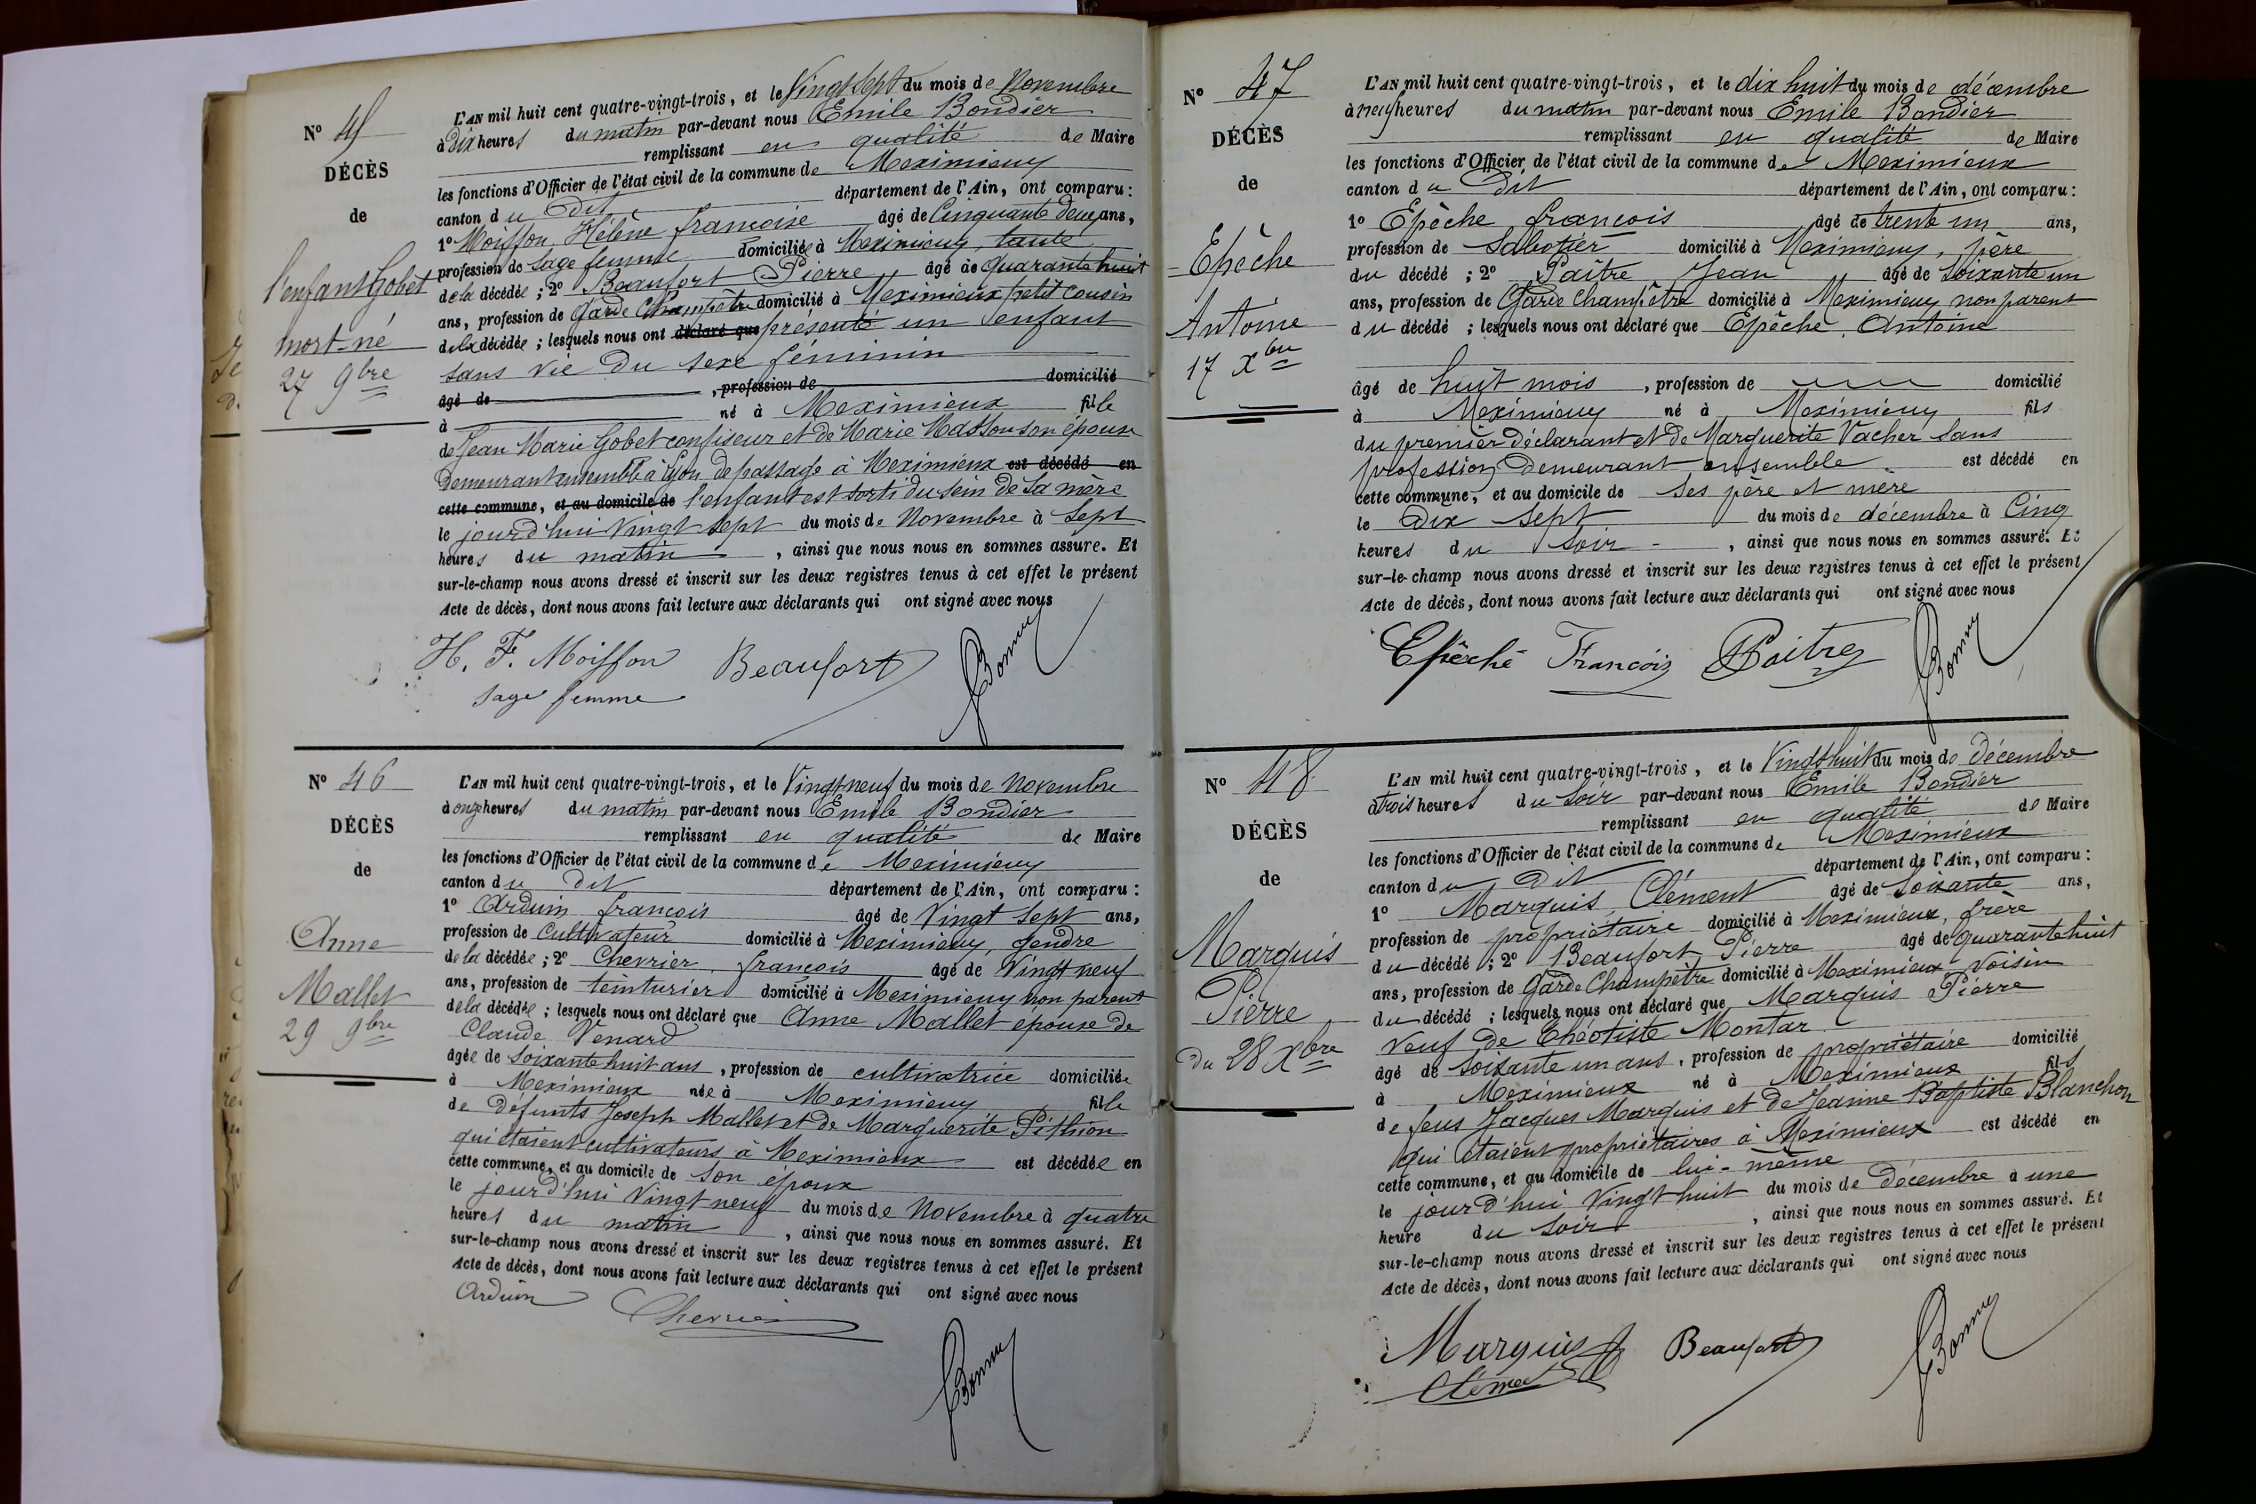 N° 45
DÉCÈS
de
l'enfant Gobet
mort-né
27 9bre
L'AN mil huit cent quatre-vingt-trois, et le Vingt sept du mois de Novembre
à dix heures du matin par-devant nous Emile Bondier
remplissant en qualité de Maire
les fonctions d'Officier de l'état civil de la commune de Meximieux
canton du Dit département de l'Ain, ont comparu :
1° Moisson Hélène françoise âgé de Cinquante deux ans,
profession de sage femme domiciliée à Meximieux, tante
de la décédée ; 2° Beaufort Pierre âgé de quarante huit
ans, profession de Garde Champêtre domicilié à Meximieux petit cousin
de la décédée ; lesquels nous ont déclaré que présenté un enfant
sans vie du sexe féminin
âgé de , profession de domicilié
à né à Meximieux fille
de Jean Marie Gobet confiseur et de Marie Masson son épouse
demeurant ensemble à Lyon de passage à Meximieux est décédé en
cette commune, et au domicile de l'enfant est sorti du sein de sa mère
le jourd'hui Vingt sept du mois de Novembre à Sept
heures du matin , ainsi que nous nous en sommes assuré. Et
sur-le-champ nous avons dressé et inscrit sur les deux registres tenus à cet effet le présent
Acte de décès, dont nous avons fait lecture aux déclarants qui ont signé avec nous
H. F. Moisson Beaufort
sage femme
N° 46
DÉCÈS
de
Anne
Mallet
29 9bre
L'AN mil huit cent quatre-vingt-trois, et le Vingt neuf du mois de Novembre
à onze heures du matin par-devant nous Emile Bondier
remplissant en qualité de Maire
les fonctions d'Officier de l'état civil de la commune de Meximieux
canton du Dit département de l'Ain, ont comparu :
1° Arduin françois âgé de Vingt Sept ans,
profession de Cultivateur domicilié à Meximieux, gendre
de la décédée ; 2° Chevrier françois âgé de Vingt neuf
ans, profession de teinturier domicilié à Meximieux non parent
de la décédée ; lesquels nous ont déclaré que Anne Mallet épouse de
Claude Venard
âgée de Soixante huit ans , profession de cultivatrice domiciliée
à Meximieux née à Meximieux fille
de défunts Joseph Mallet et de Marguerite Pithion
qui étaient cultivateurs à Meximieux est décédée en
cette commune, et au domicile de son époux
le jourd'hui Vingt neuf du mois de Novembre à quatre
heures du matin , ainsi que nous nous en sommes assuré. Et
sur-le-champ nous avons dressé et inscrit sur les deux registres tenus à cet effet le présent
Acte de décès, dont nous avons fait lecture aux déclarants qui ont signé avec nous
Arduin Chevrier
N° 47
DÉCÈS
de
Epêche
Antoine
17 Xbre
L'AN mil huit cent quatre-vingt-trois, et le dix huit du mois de décembre
à neuf heures du matin par-devant nous Emile Bondier
remplissant en qualité de Maire
les fonctions d'Officier de l'état civil de la commune de Meximieux
canton du Dit département de l'Ain, ont comparu :
1° Epêche françois âgé de trente un ans,
profession de Sabotier domicilié à Meximieux, père
du décédé ; 2° Paître Jean âgé de Soixante un
ans, profession de Garde Champêtre domicilié à Meximieux non parent
du décédé ; lesquels nous ont déclaré que Epêche Antoine
âgé de huit mois , profession de domicilié
à Meximieux né à Meximieux fils
du premier déclarant et de Marguerite Vacher sans
profession demeurant ensemble est décédé en
cette commune, et au domicile de Ses père et mère
le Dix Sept du mois de décembre à Cinq
heures du soir , ainsi que nous nous en sommes assuré. Et
sur-le-champ nous avons dressé et inscrit sur les deux registres tenus à cet effet le présent
Acte de décès, dont nous avons fait lecture aux déclarants qui ont signé avec nous
Epêche François Paitre
N° 48
DÉCÈS
de
Marquis
Pierre
Du 28 Xbre
L'AN mil huit cent quatre-vingt-trois, et le Vingt huit du mois de Décembre
à trois heures du Soir par-devant nous Emile Bondier
remplissant en qualité de Maire
les fonctions d'Officier de l'état civil de la commune de Meximieux
canton du Dit département de l'Ain, ont comparu :
1° Marquis Clément âgé de Soixante ans,
profession de propriétaire domicilié à Meximieux, frère
du décédé ; 2° Beaufort Pierre âgé de quarante huit
ans, profession de Garde Champêtre domicilié à Meximieux Voisin
du décédé ; lesquels nous ont déclaré que Marquis Pierre
veuf de Théotiste Montar
âgé de soixante un ans , profession de propriétaire domicilié
à Meximieux né à Meximieux fils
de feus Jacques Marquis et de Jeanne Baptiste Blanchon
qui étaient propriétaires à Meximieux est décédé en
cette commune, et au domicile de lui-même
le jourd'hui Vingt huit du mois de Décembre à une
heure du Soir , ainsi que nous nous en sommes assuré. Et
sur-le-champ nous avons dressé et inscrit sur les deux registres tenus à cet effet le présent
Acte de décès, dont nous avons fait lecture aux déclarants qui ont signé avec nous
Marquis Beaufort
Clément